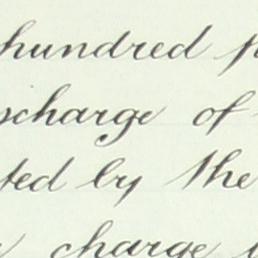 hundred
scharge of
ted by the
charge